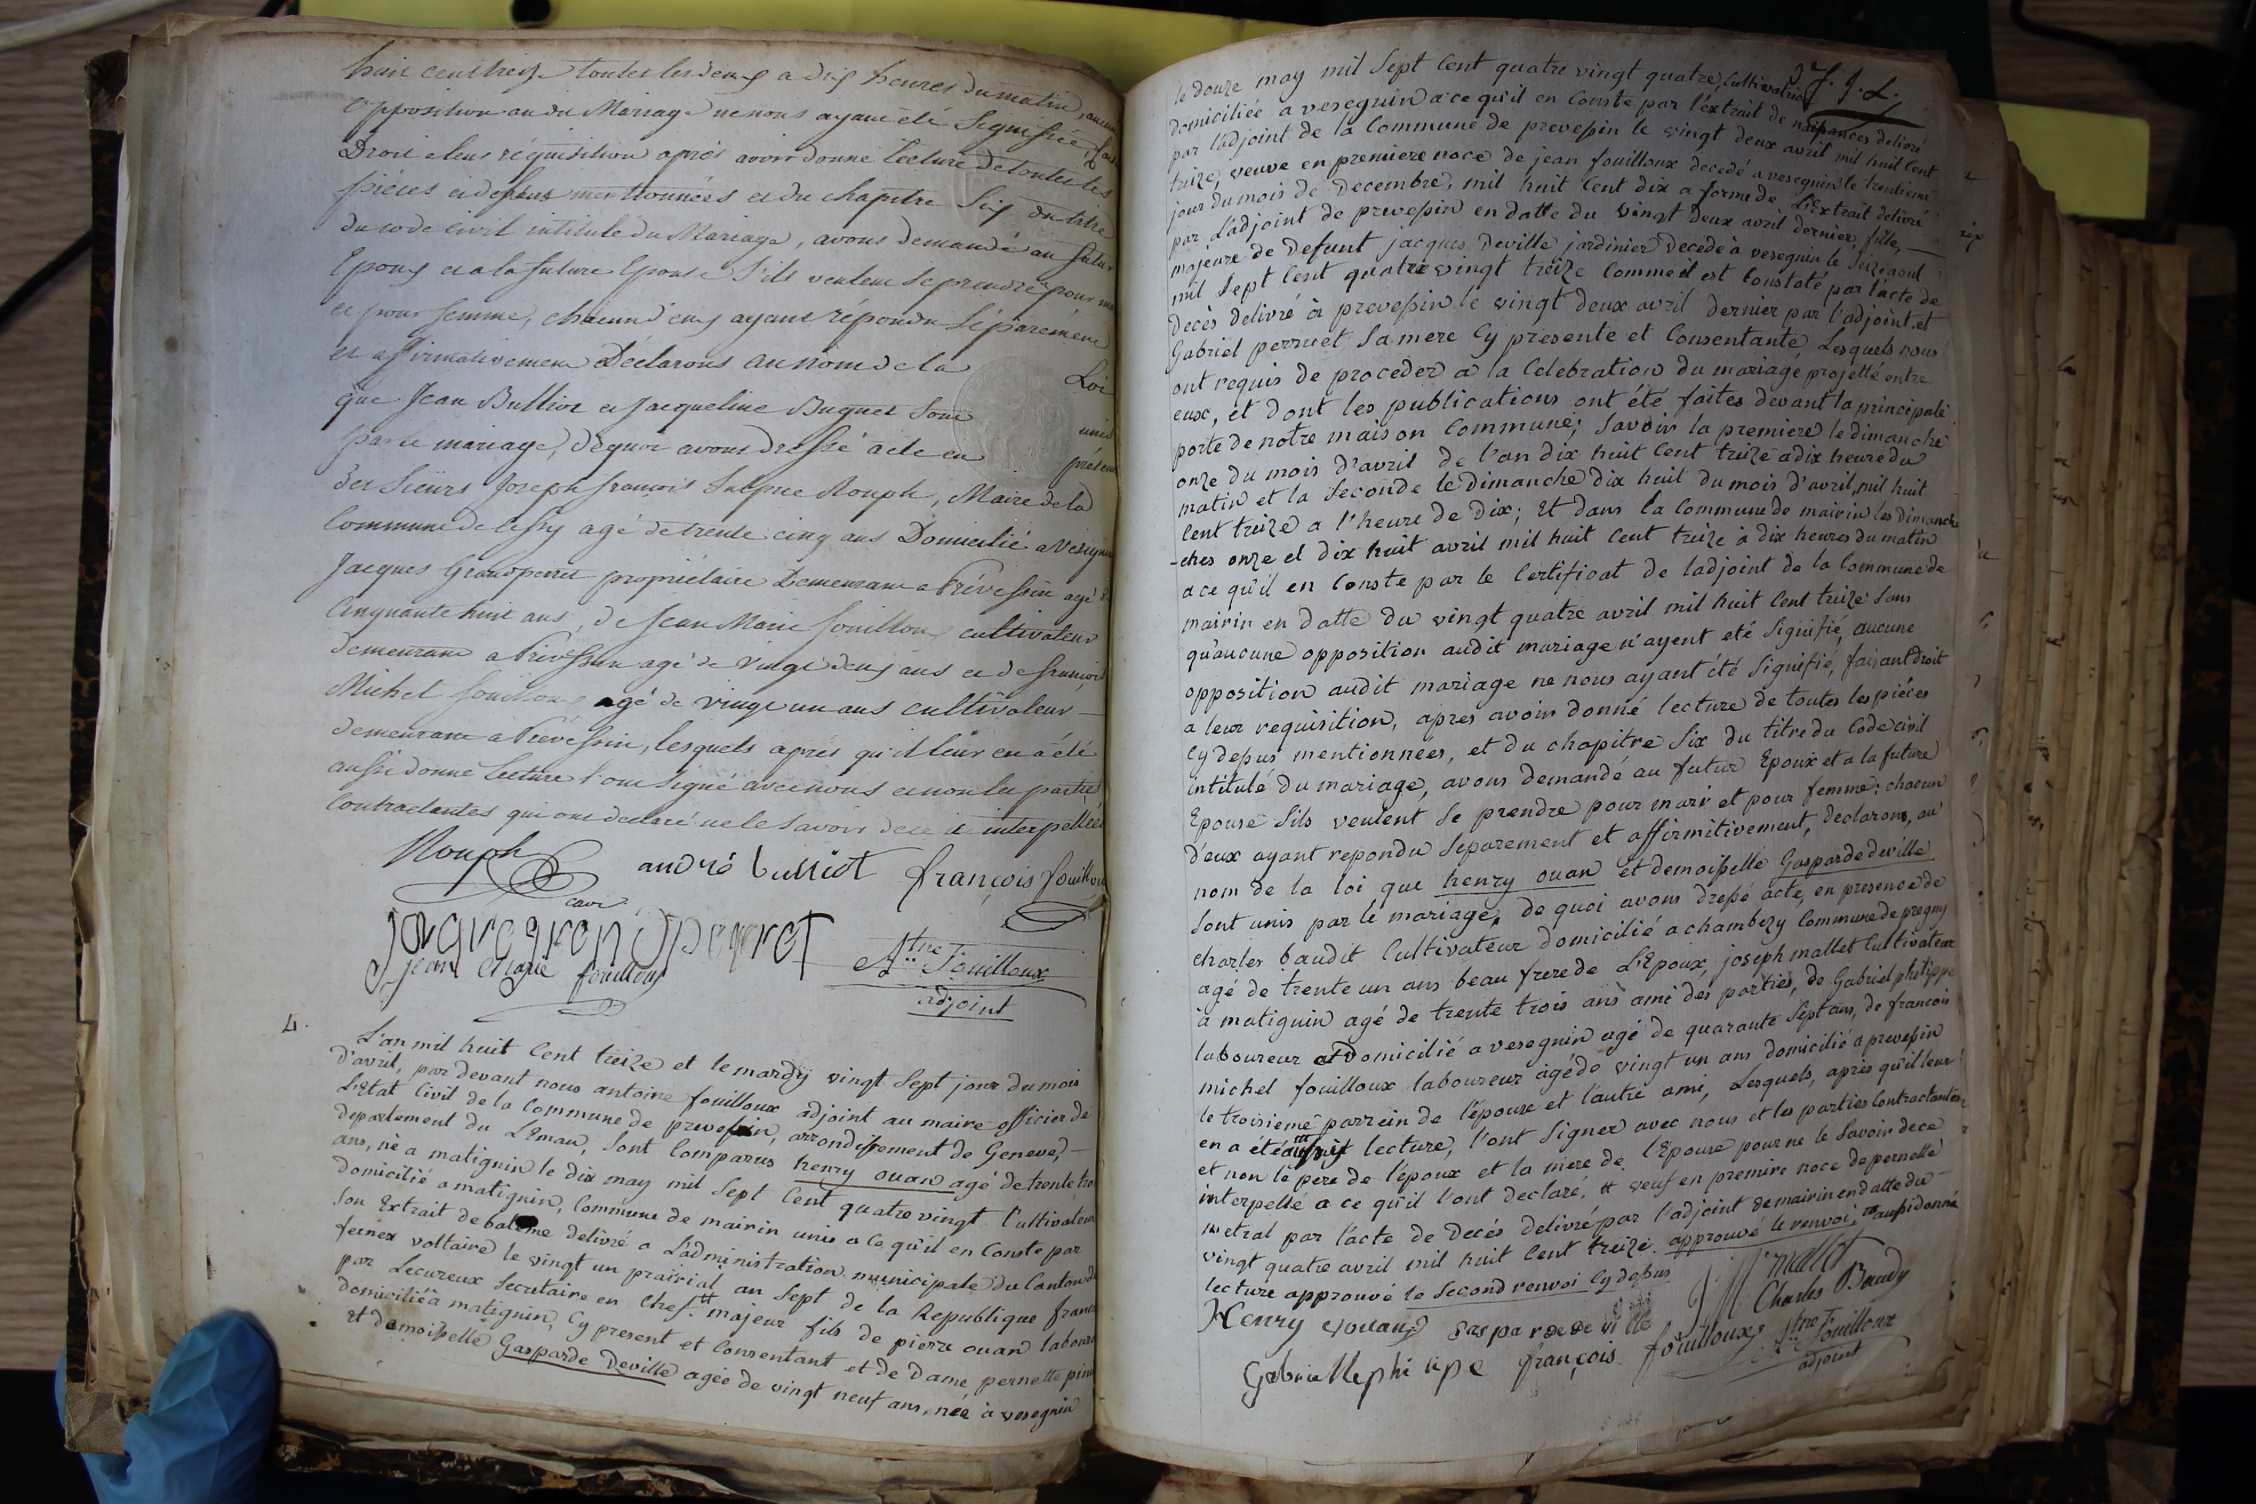 huit cent treize toutes les deux a dix heures du matin, aucune
opposition au dit Mariage ne nous ayant été Signifiée, fais
Droit a leur réquisition après avoir donné lecture de toutes les
pièces ci dessus mentionnées et du chapitre Six du titre
du code Civil intitulé du Mariage, avons demandé au futur
Epoux et a la future Epouse S'ils veulent se prendre pour mari
et pour femme, chacun d'eux ayant répondu Séparément
et affirmativement Déclarons au nom de la Loi
que Jean Bulliot et Jacqueline Buguet Sont unis
par le mariage, de quoi avons dressé acte en présence
des Sieurs Joseph françois Rouph, Maire de la
Commune de Cessy agé de trente cinq ans Domicilié a Vesegnin
Jacques Grandperret propriétaire Demeurant a Prévessin agé de
Cinquante huit ans, de Jean Marie fouilloux cultivateur
demeurant a Prévessin agé de vingt deux ans et de françois
Michel fouilloux agé de vingt un ans cultivateur
demeurant a Prévessin, lesquels après qu'il leur en a été
aussi donné lecture l'ont signé avec nous et non les parties
Contractantes qui ont déclaré ne le Savoir de ce interpellées
Rouph andré bulliot françois fouilloux
jaque grandperret
jean Marie fouilloux Atne Fouilloux
adjoint
4.
L'an mil huit Cent treize et le mardy vingt Sept jour du mois
d'avril, par devant nous antoine fouilloux adjoint au maire officier de
L'Etat Civil de la Commune de prevessin, arrondissement de Geneve,
departement du Léman, Sont Comparus henry ouan agé de trente trois
ans, né a matignin le dix may mil Sept Cent quatre vingt Cultivateur
domicilié a matignin, Commune de mairin unis a ce qu'il en Conste par
Son Extrait de bateme delivré a L'administration municipale du Canton de
fernex voltaire le vingt un prairial an Sept de la Republique francaise
par Lecureux Secretaire en Chef. # majeur fils de pierre ouan laboureur
domicilié a matignin, Cy present et Consentant et de Dame pernette
Et demoiselle Gasparde Deville agée de vingt neuf ans, née à vesegnin
J. J. L.
le douze may mil Sept Cent quatre vingt quatre, Cultivatrice
domiciliée a vesegnin a ce qu'il en Conste par l'éxtrait de naissances delivré
par l'adjoint de la Commune de prevessin le vingt deux avril mil huit Cent
treize, veuve en premiere noce de jean fouilloux decedé a vesegnin le trentieme
jour du mois de Decembre, mil huit Cent dix a forme de L'Extrait delivré
par L'adjoint de prevessin en datte du vingt deux avril dernier, fille,
majeure de Defunt jacques Deville jardinier decedé à vesegnin le Seize aout
mil Sept Cent quatre vingt treize Comme il est Constaté par l'acte de
decès delivré à prevessin le vingt deux avril dernier par l'adjoint, et
Gabriel perruet Sa mere Cy presente et Consentante Lesquels nous
ont requis de proceder a la Celebration du mariage projetté entre
eux, et dont les publications ont été faites devant la principale
porte de notre maison Commune; Savoir la premiere le dimanche
onze du mois d'avril de l'an dix huit Cent treize a dix heure du
matin et la Seconde le dimanche dix huit du mois d'avril, mil huit
Cent treize a l'heure de dix; Et dans la Commune de mairin les dimanche
-ches onze et dix huit avril mil huit Cent treize à dix heures du matin
a ce qu'il en Conste par le Certificat de ladjoint de la Commune de
mairin en datte du vingt quatre avril mil huit Cent treize Sans
qu'aucune opposition audit mariage n'ayent eté Signifié, aucune
opposition audit mariage ne nous ayant été Signifié, faisant droit
a leur requisition, apres avoir donné lecture de toutes les piéces
Cy dessus mentionnees, et du chapitre Six du titre du Code Civil
intitulé Du mariage, avons demandé au futur Epoux et a la future
Epouse Sils veulent Se prendre pour mari et pour femme; chacun
d'eux ayant repondu Separement et affirmitivement, declarons, au
nom de la loi que henry ouan et demoisselle Gasparde deville
Sont unis par le mariage, de quoi avons dressé acte, en presence de
charles baudit Cultivateur domicilié a chambezy Commune de pregny
agé de trente un ans beau frere de L'Epoux, joseph mallet Cultivateur
à matignin agé de trente trois ans ami des parties, de Gabriel philippe
laboureur et Domicilié a vesegnin agé de quarante Sept ans, de francois
michel fouilloux laboureur agé de vingt un ans domicilié a prevessin
le troisieme parrein de l'épouse et l'autre ami, Lesquels, après qu'il leur
en a été lecture, l'ont Signer avec nous et les parties Contractantes
et non le pere de l'époux et la mere de l'Epouse pour ne le Savoir de ce
interpellé a ce qu'il l'ont declaré. # veuf en premire noce de pernette
metral par l'acte de Decés delivré par l'adjoint de mairin en datte du
vingt quatre avril mil huit Cent treize. approuvé le renvoi, aussi donné
lecture approuvé le Second renvoi Cy dessus
Henry ouan gasparde de ville J mallet
Charles Baudy
Gabriel lephilipe françois fouilloux Atne Fouilloux
adjoint